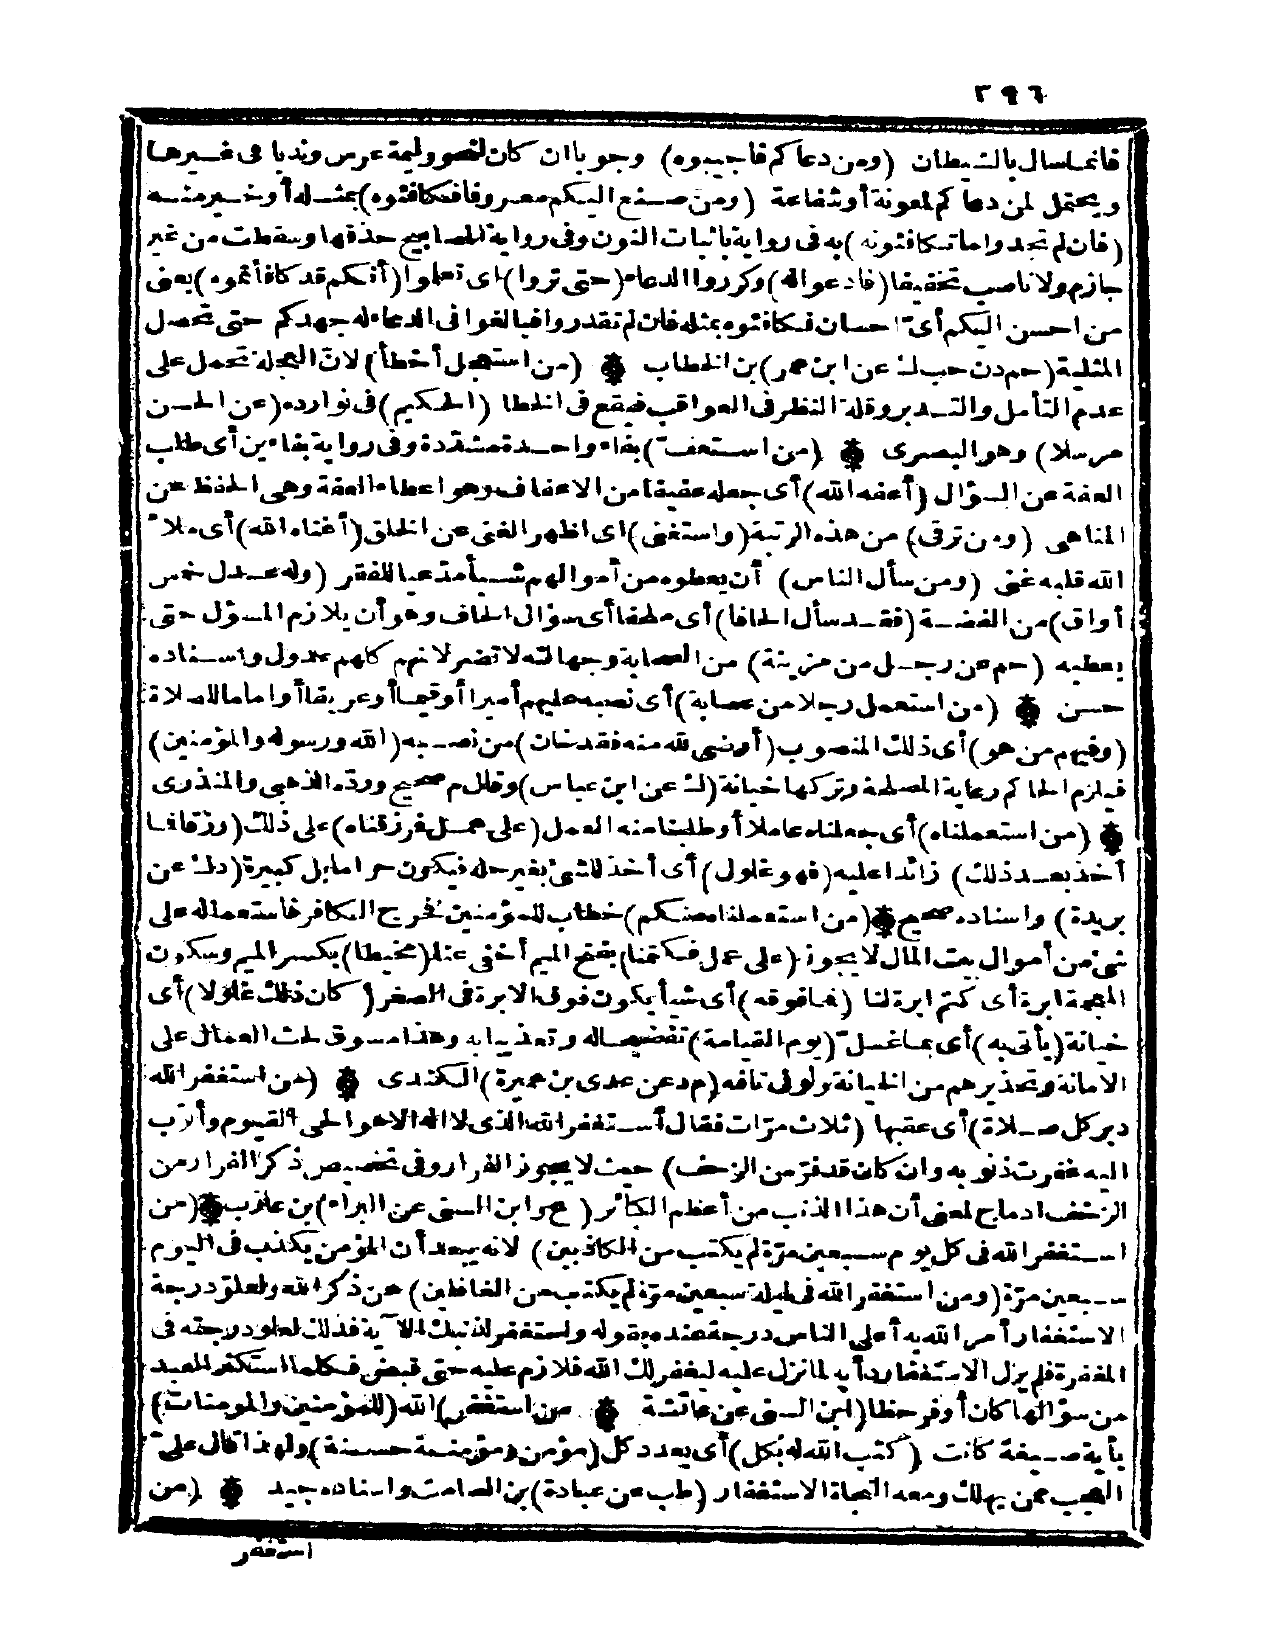 ٢٩٦
فانما سأل بالشيطان (ومن دعاكم فاجيبوه) وجوبا ان كان لنحو وليمة عرس وندبا فى غيرها
ويحتمل لمن دعاكم لمعونة أو شفاعة (ومن صنع اليكم معروفا فكافئوه) بمثله أو خير منه
(فان لم تجدوا ما تكافئونه) به فى رواية باثبات النون وفى رواية المصابيح حذفها وسقطت من غير
جازم ولا ناصب تخفيفا (فادعوا له) وكرروا الدعاء (حتى تروا) اى تعلموا (أنكم قد كافأتموه) يعنى
من احسن اليكم أى احسان فكافئوه بمثله فان لم تقدروا فبالغوا فى الدعاء له جهدكم حتى تحصل
المثلية (حم د ن حب ك عن ابن عمر) بن الخطاب ۞ (من استعجل أخطأ) لان العجلة تحمل على
عدم التأمل والتدبر وقلة النظر فى العواقب فيقع فى الخطا (الحكيم) فى نوادره (عن الحسن
مرسلا) وهو البصرى ۞ (من استعف) بفاء واحدة مشددة وفى رواية بفاءين أى طلب
العفة عن السؤال (أعفه الله) أى جعله عفيفا من الاعفاف وهو اعطاء العفة وهى الحفظ عن
المناهى (ومن ترقى) من هذه الرتبة (واستغنى) اى اظهر الغنى عن الخلق (أغناه الله) أى ملا ٔ
الله قلبه غنى (ومن سأل الناس) أن يعطوه من أموالهم شيأ مدعيا للفقر (وله عدل خمس
أواق) من الفضة (فقد سأل الحافا) أى ملحفا أى سؤال الحاف وهو أن يلازم المسؤل حتى
يعطيه (حم عن رجل من مزينة) من الصحابة وجهالته لا تضر لانهم كلهم عدول واسناده
حسن ۞ (من استعمل رجلا من عصابة) أى نصبه عليهم أميرا أو قيما أو عريفا أو اماما للصلاة
(وفيهم من هو) أى ذلك المنصوب (أرضى لله منه فقد خان) من نصبه (الله ورسوله والمؤمنين)
فيلزم الحاكم رعاية المصلحة وتركها خيانة (ك عن ابن عباس) وقال م صحيح ورده الذهبى والمنذرى
۞ (من استعملناه) أى جعلناه عاملا أو طلبنا منه العمل (على عمل فرزقناه) على ذلك (رزقا فما
أخذ بعد ذلك) زائدا عليه (فهو غلول) أى أخذ للشئ بغير حله فيكون حراما بل كبيرة (د ك عن
بريدة) واسناده صحيح ۞ (من استعملناه منكم) خطاب للمؤمنين فخرج الكافر فاستعماله على
شئ من أموال بيت المال لا يجوز (على عمل فكتمنا) بفتح الميم أخفى عنا (مخيطا) بكسر الميم وسكون
المعجمة ابرة أى كتم ابرة لنا (فما فوقه) أى شيأ يكون فوق الابرة فى الصغر (كان ذلك غلولا) أى
خيانة (يأتى به) أى بما غل (يوم القيامة) تفضيحا له وتعذيبا به وهذا مسوق لحث العمال على
الامانة وتحذيرهم من الخيانة ولو فى تافه (م د عن عدى بن عميرة) الكندى ۞ (من استغفر الله
دبر كل صلاة) أى عقبها (ثلاث مرّات فقال أستغفر الله الذى لا اله الا هو الحى القيوم وأتوب
اليه غفرت ذنوبه وان كان قد فرّ من الزحف) حيث لا يجوز الفرار وفى تخصيص ذكر الفرار من
الزحف ادماج لمعنى أن هذا الذنب من أعظم الكبائر (ع وابن السنى عن البراء) بن عازب ۞ (من
استغفر الله فى كل يوم سبعين مرّة لم يكتب من الكاذبين) لانه يبعد أن المؤمن يكذب فى اليوم
سبعين مرّة (ومن استغفر الله فى ليلة سبعين مرّة لم يكتب من الغافلين) عن ذكر الله ولعلوّ درجة
الاستغفار أمر الله به أعلى الناس درجة عنده بقوله واستغفر لذنبك الآية فذلك لعلو درجته فى
المغفرة فلم يزل الاستغفار دأبه لما نزل عليه ليغفر لك الله فلازم عليه حتى قبض فكلما استكثر العبد
من سؤالها كان أوفر حظا (ابن السنى عن عائشة ۞ من استغفر) الله (للمؤمنين والمؤمنات)
بأية صيغة كانت (كتب الله له بكل) أى بعدد كل (مؤمن ومؤمنة حسنة) ولهذا قال على
العجب ممن يهلك ومعه النجاة الاستغفار (طب عن عبادة) بن الصامت واسناده جيد ۞ (من
استغفر